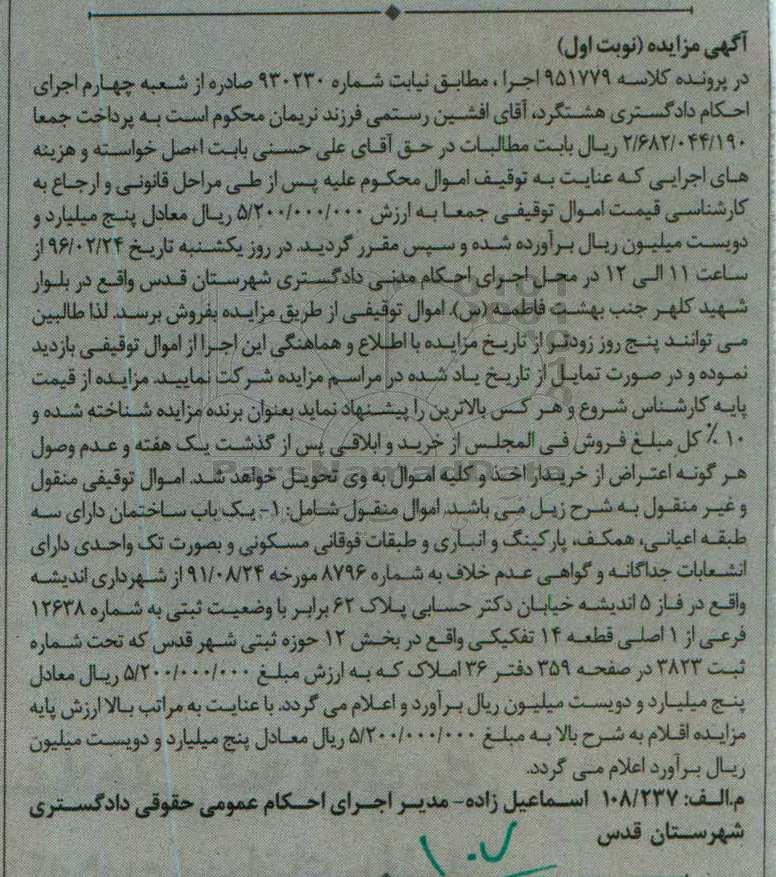 آگهی مزایده (نوبت اول)
در پرونده کلاسه ۹۵۱۷۷۹ اجرا ، مطابق نیابت شماره ۹۳۰۲۳۰ صادره از شعبه چهارم اجرای
احکام دادگستری هشتگرد، آقای افشین رستمی فرزند نریمان محکوم است به پرداخت جمعا
۲/۶۸۲/۰۴۴/۱۹۰ ریال بابت مطالبات در حق آقای علی حسنی بابت اصل خواسته و هزینه
های اجرایی که عنایت به توقیف اموال محکوم علیه پس از طی مراحل قانونی و ارجاع به
کارشناسی قیمت اموال توقیفی جمعا به ارزش ۵/۲۰۰/۰۰۰/۰۰۰ ریال معادل پنج میلیارد و
دویست میلیون ریال برآورده شده و سپس مقرر گردید. در روز یکشنبه تاریخ ۹۶/۰۲/۲۴ از
ساعت ۱۱ الی ۱۲ در محل اجرای احکام مدنی دادگستری شهرستان قدس واقع در بلوار
شهید کلهر جنب بهشت فاطمه (س). اموال توقیفی از طریق مزایده بفروش برسد. لذا طالبین
می توانند پنج روز زودتر از تاریخ مزایده با اطلاع و هماهنگی این اجرا از اموال توقیفی بازدید
نموده و در صورت تمایل از تاریخ یاد شده در مراسم مزایده شرکت نمایید. مزایده از قیمت
پایه کارشناس شروع و هر کس بالاترین را پیشنهاد نماید بعنوان برنده مزایده شناخته شده و
۱۰ ٪ کل مبلغ فروش فی المجلس از خرید و ابلاقی پس از گذشت یک هفته و عدم وصول
هر گونه اعتراض از خریدار اخذ و کلیه اموال به وی تحویل خواهد شد. اموال توقیفی منقول
و غیر منقول به شرح زیل می باشد. اموال منقول شامل: ۱- یک باب ساختمان دارای سه
طبقه اعیانی، همکف، پارکینگ و انباری و طبقات فوقانی مسکونی و بصورت تک واحدی دارای
انشعابات جداگانه و گواهی عدم خلاف به شماره ۸۷۹۶ مورخه ۹۱/۰۸/۲۴ از شهرداری اندیشه
واقع در فاز ۵ اندیشه خیابان دکتر حسابی پلاک ۶۲ برابر با وضعیت ثبتی به شماره ۱۲۶۳۸
فرعی از ۱ اصلی قطعه ۱۴ تفکیکی واقع در بخش ۱۲ حوزه ثبتی شهر قدس که تحت شماره
ثبت ۳۸۲۳ در صفحه ۳۵۹ دفتر ۳۶ املاک که به ارزش مبلغ ۵/۲۰۰/۰۰۰/۰۰۰ ریال معادل
پنج میلیارد و دویست میلیون ریال برآورد و اعلام می گردد. با عنایت به مراتب بالا ارزش پایه
مزایده اقلام به شرح بالا به مبلغ ۵/۲۰۰/۰۰۰/۰۰۰ ریال معادل پنج میلیارد و دویست میلیون
ریال برآورد اعلام می گردد.
م.الف: ۱۰۸/۲۳۷ اسماعیل زاده- مدیر اجرای احکام عمومی حقوقی دادگستری
شهرستان قدس
ParsNamadData